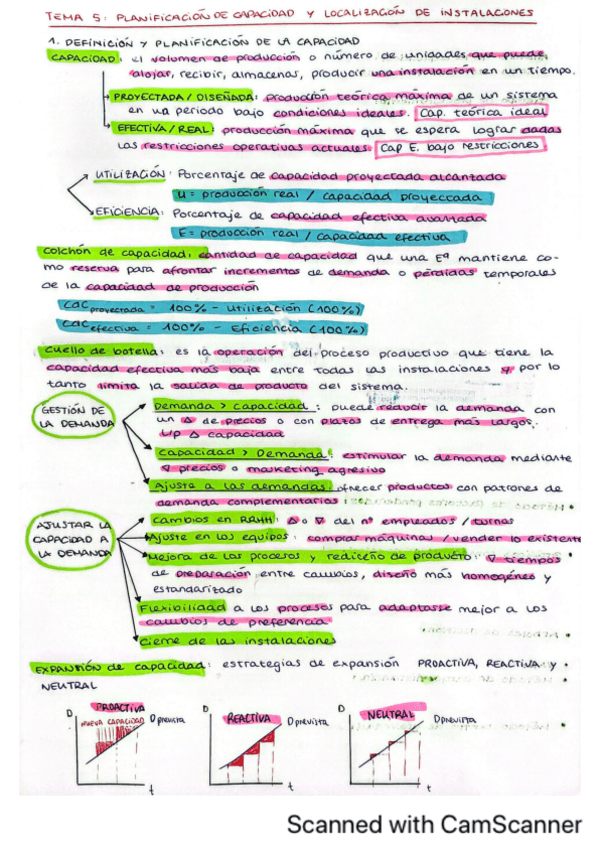 TEMA 5: PLANIFICACIÓN DE CAPACIDAD Y LOCALIZACIÓN DE INSTALACIONES
1. DEFINICIÓN Y PLANIFICACIÓN DE LA CAPACIDAD
CAPACIDAD: El volumen de producción o número de unidades que puede
alojar, recibir, almacenar, producir una instalación en un tiempo.
PROYECTADA / DISEÑADA: producción teórica máxima de un sistema
en un periodo bajo condiciones ideales. Cap. teórica ideal
EFECTIVA / REAL: producción máxima que se espera lograr dadas
las restricciones operativas actuales. Cap E. bajo restricciones
UTILIZACIÓN: Porcentaje de capacidad proyectada alcanzada
U = producción real / capacidad proyectada
EFICIENCIA: Porcentaje de capacidad efectiva
E = producción real / capacidad efectiva
Colchón de capacidad: cantidad de capacidad que una Eª mantiene co-
mo reserva para afrontar incrementos de demanda o pérdidas temporales
de la capacidad de producción
CdC proyectada = 100% - Utilización (100%)
CdC efectiva = 100% - Eficiencia (100%)
Cuello de botella: es la operación del proceso productivo que tiene la
capacidad efectiva más baja entre todas las instalaciones y por lo
tanto limita la salida de producto del sistema.
GESTIÓN DE
LA DEMANDA
Demanda > Capacidad: puede reducir la demanda con
un Δ de precios o con plazos de entrega más largos.
Δ capacidad
Capacidad > Demanda: estimular la demanda mediante
∇ precios o marketing agresivo
Ajuste a las demandas: ofrecer productos con patrones de
demanda complementarios
AJUSTAR LA
CAPACIDAD A
LA DEMANDA
Cambios en RRHH: Δ o ∇ del nº empleados / turnos
Ajuste en los equipos: comprar máquinas / vender lo existente
Mejora de los procesos y rediceño de producto: ∇ tiempos
de preparación entre cambios, diseño más homogéneo y
estandarizado
Flexibilidad a los procesos para adaptarse mejor a los
cambios de preferencia
Cierre de las instalaciones
EXPANSIÓN de capacidad: estrategias de expansión PROACTIVA, REACTIVA y
NEUTRAL
D PROACTIVA
NUEVA CAPACIDAD D prevista
t
D REACTIVA D prevista
t
D NEUTRAL D prevista
t
Scanned with CamScanner